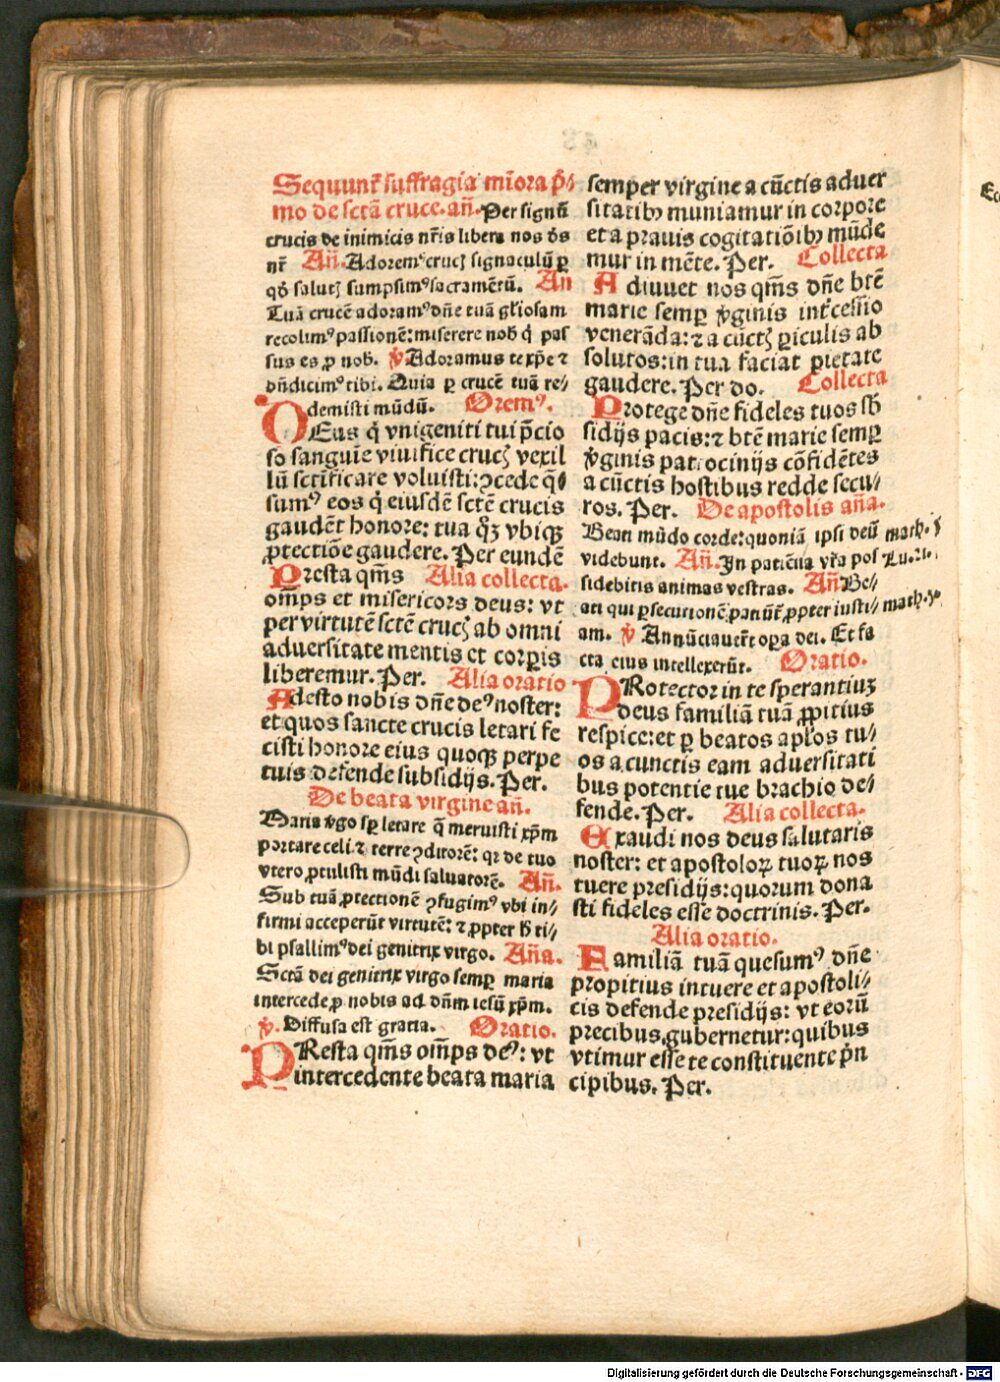 Sequunt᷑ suffragia mīora p̄⸗
mo de sctā cruce. añ. Per signū
crucis de inimicis nr̄is libera nos d̄s
nr̄ Añ. Adoremꝰ crucꝭ signaculū ꝑ
qḋ salutꝭ sumpsimꝰ sacramētū. Añ
Tuā crucē adoramꝰ dn̄e tuā gl̄iosam
recolimꝰ passionē: miserere nob̄ q̇ pas
sus es ꝓ nob. ꝟ Adoramus te xp̄e ⁊
bn̄dicimꝰ tibi. Quia ꝑ crucē tuā re⸗
demisti mūdū. Oremꝰ.
DEus q̇ vnigeniti tui p̄cio
so sanguīe viuifice crucꝭ vexil
lū sctificare voluisti: ꝯcede q̄⸗
sumꝰ eos q̇ eiusdē sctē crucis
gaudēt honore: tua qꝫ vbiqꝫ
ꝓtectiōe gaudere. Per eundē
Presta qm̄s Alia collecta.
om̄ps et misericors deus: vt
per virtutē sctē crucꝭ ab omni
aduersitate mentis et corꝑis
liberemur. Per. Alia oratio
Adesto nobis dn̄e deꝰ noster:
et quos sancte crucis letari fe
cisti honore eius quoqꝫ perpe
tuis defende subsidijs. Per.
De beata virgine añ.
Maria ꝟgo sꝑ letare q̄ meruisti xp̄m
portare celi ⁊ terre ꝯditorē: qꝛ de tuo
vtero ꝓtulisti mūdi saluatorē. Añ.
Sub tuā ꝓtectionē ꝯfugimꝰ vbi in⸗
firmi acceperūt virtutē: ⁊ ꝓpter h̄ ti⸗
bi psallimꝰ dei genitrix virgo. Aña.
Sctā dei genitrix virgo semꝑ maria
intercede ꝓ nobis ad dn̄m iesū xp̄m.
ꝟ. Diffusa est gratia. Oratio.
PResta qm̄s om̄ps deꝰ: vt
intercedente beata maria
semper virgine a cūctis aduer
sitatibꝫ muniamur in corpore
et a prauis cogitatiōibꝫ mūde
mur in mēte. Per. Collecta
Adiuuet nos qm̄s dn̄e btē
marie semꝑ ꝟginis int᷑cessio
venerāda: ⁊ a cūctꝭ ꝑiculis ab
solutos: in tua faciat ꝑietate
gaudere. Per do. Collecta
Protege dn̄e fideles tuos sb̄
sidijs pacis: ⁊ btē marie semꝑ
ꝟginis patrocinijs cōfidētes
a cūctis hostibus redde secu⸗
ros. Per. De apostolis aña.
Beati mūdo corde: quoniā ipsi deū math. 5
videbunt. Añ. In patiētia vr̄a pos Lu. 21.
sidebitis animas vestras. Añ Be⸗
ati qui ꝑsecutionē paniūt᷑ ꝓpter iusti⸗ math.
am. ꝟ Annūciauer̄t oꝑa dei. Et fa
cta eius intellexerūt. Oratio.
PRotector in te sperantiuꝫ
deus familiā tuā ꝓpitius
respice: et ꝑ beatos apl̄os tu⸗
os a cunctis eam aduersitati
bus potentie tue brachio de⸗
fende. Per. Alia collecta.
Exaudi nos deus salutaris
noster: et apostoloꝝ tuoꝝ nos
tuere presidijs: quorum dona
sti fideles esse doctrinis. Per.
Alia oratio.
Familiā tuā quesumꝰ dn̄e
propitius intuere et apostoli⸗
cis defende presidijs: vt eorū
precibus gubernetur: quibus
vtimur esse te constituente p̄n
cipibus. Per.
Digitalisierung gefördert durch die Deutsche Forschungsgemeinschaft - DFG